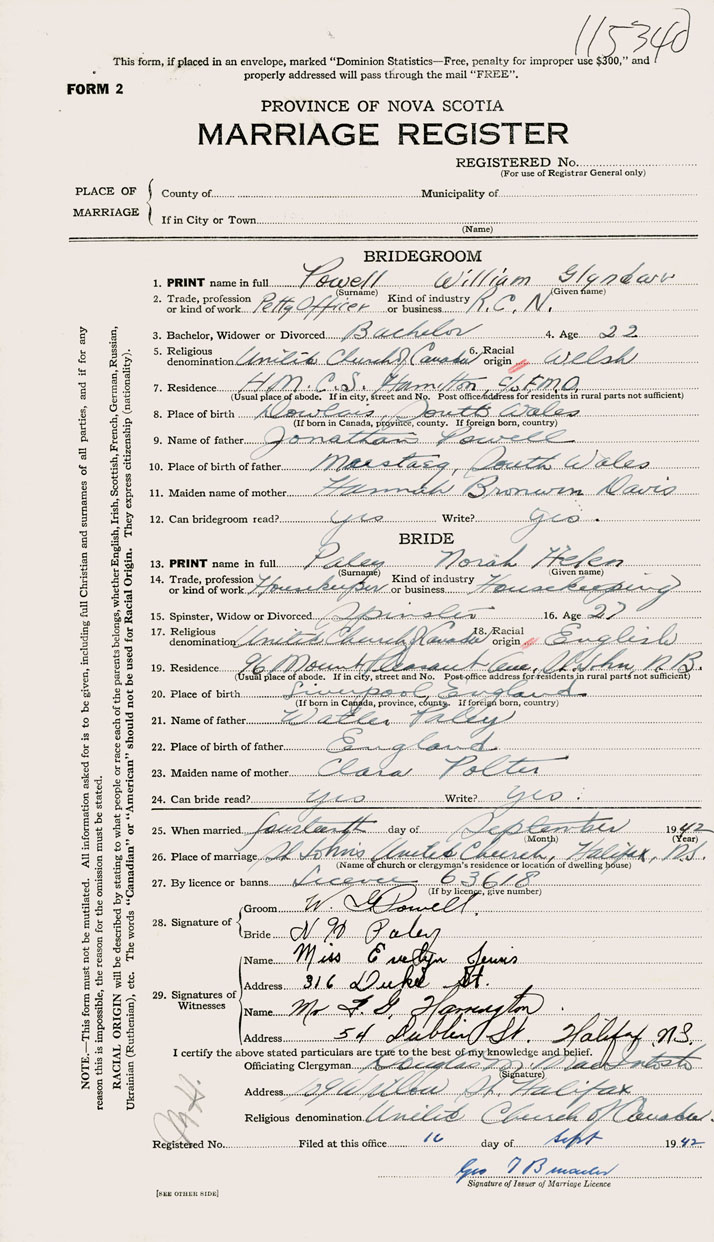 115340
This form, if placed in an envelope, marked "Dominion Statistics—Free, penalty for improper use $300," and
properly addressed will pass through the mail "FREE".
FORM 2
PROVINCE OF NOVA SCOTIA
MARRIAGE REGISTER
REGISTERED No.
(For use of Registrar General only)
PLACE OF MARRIAGE
County of Municipality of
If in City or Town
(Name)
BRIDEGROOM
1. PRINT name in full Powell William
(Surname) (Given name)
2. Trade, profession or kind of work Petty Officer Kind of industry or business R.C.N.
3. Bachelor, Widower or Divorced Bachelor 4. Age 22
5. Religious denomination United Church of Canada 6. Racial origin Welsh
7. Residence H.M.C.S. Hamilton c/o F.M.O.
(Usual place of abode. If in city, street and No. Post office address for residents in rural parts not sufficient)
8. Place of birth Dowlais, South Wales
(If born in Canada, province, county. If foreign born, country)
9. Name of father Jonathan Powell
10. Place of birth of father Maesteg, South Wales
11. Maiden name of mother Hannah Bronwen Davis
12. Can bridegroom read? yes Write? yes.
BRIDE
13. PRINT name in full Paley Norah Helen
(Surname) (Given name)
14. Trade, profession or kind of work Housekeeper Kind of industry or business Housekeeping
15. Spinster, Widow or Divorced Spinster 16. Age 27
17. Religious denomination United Church of Canada 18. Racial origin English
19. Residence 96 Mount Pleasant Ave, St. John, N.B.
(Usual place of abode. If in city, street and No. Post office address for residents in rural parts not sufficient)
20. Place of birth Liverpool, England
(If born in Canada, province, county. If foreign born, country)
21. Name of father Walter Paley
22. Place of birth of father England
23. Maiden name of mother Clara Potter
24. Can bride read? yes Write? yes.
25. When married fourteenth day of September 1942
(Month) (Year)
26. Place of marriage St John's United Church, Halifax, N.S.
(Name of church or clergyman's residence or location of dwelling house)
27. By licence or banns Licence 63618
(If by licence, give number)
28. Signature of
Groom W. G Powell.
Bride N H Paley
29. Signatures of Witnesses
Name Miss Evelyn
Address 316 Duke St.
Name Mr F. G. Harrington
Address 54 Dublin St. Halifax N.S.
I certify the above stated particulars are true to the best of my knowledge and belief.
Officiating Clergyman Douglas M.
(Signature)
Address Willow St. Halifax
Religious denomination United Church of Canada.
Registered No. Filed at this office 16 day of Sept 1942
Geo
Signature of Issuer of Marriage Licence
[SEE OTHER SIDE]
NOTE.—This form must not be mutilated. All information asked for is to be given, including full Christian and surnames of all parties, and if for any
reason this is impossible, the reason for the omission must be stated.
RACIAL ORIGIN will be described by stating to what people or race each of the parents belongs, whether English, Irish, Scottish, French, German, Russian,
Ukrainian (Ruthenian), etc. The words "Canadian" or "American" should not be used for Racial Origin. They express citizenship (nationality).